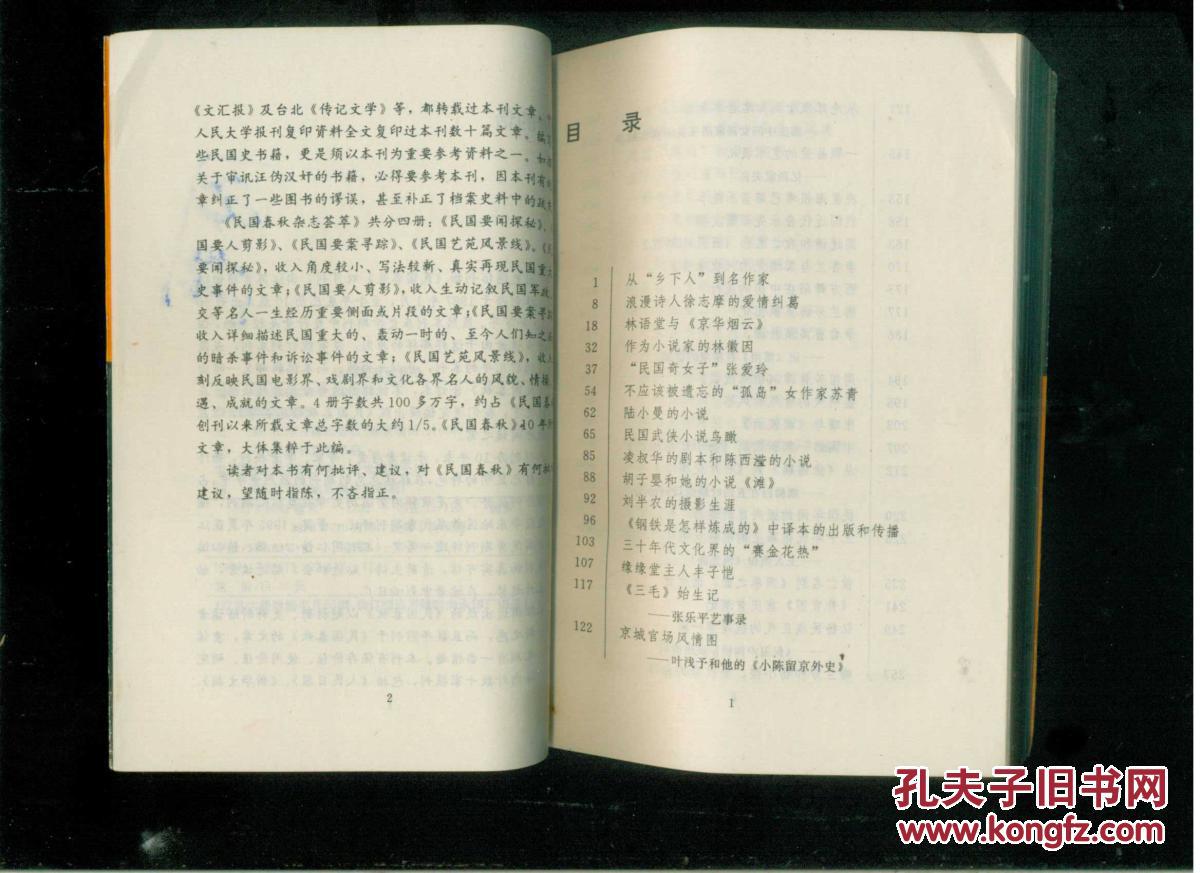 《文汇报》及台北《传记文学》等，都转载过本刊文章。
人民大学报刊复印资料全文复印过本刊数十篇文章。编写
些民国史书籍，更是须以本刊为重要参考资料之一。如
关于审讯汪伪汉奸的书籍，必得要参考本刊，因本刊有
章纠正了一些图书的谬误，甚至补正了档案史料中的
《民国春秋杂志荟萃》共分四册：《民国要闻探秘》、
国要人剪影》、《民国要案寻踪》、《民国艺苑风景线》。《
要闻探秘》，收入角度较小、写法较新、真实再现民国重
史事件的文章；《民国要人剪影》，收入生动记叙民国军政
交等名人一生经历重要侧面或片段的文章；《民国要案寻踪
收入详细描述民国重大的、轰动一时的、至今人们知之
的暗杀事件和诉讼事件的文章；《民国艺苑风景线》，收入
刻反映民国电影界、戏剧界和文化各界名人的风貌、情操
遇、成就的文章。4册字数共100多万字，约占《民国春
创刊以来所载文章总字数的大约1/5。《民国春秋》10年
文章，大体集粹于此编。
读者对本书有何批评、建议，对《民国春秋》有何批
建议，望随时指陈，不吝指正。
2
目 录
1 从“乡下人”到名作家
8 浪漫诗人徐志摩的爱情纠葛
18 林语堂与《京华烟云》
32 作为小说家的林徽因
37 “民国奇女子”张爱玲
54 不应该被遗忘的“孤岛”女作家苏青
62 陆小曼的小说
65 民国武侠小说鸟瞰
85 凌叔华的剧本和陈西滢的小说
88 胡子婴和她的小说《滩》
92 刘半农的摄影生涯
96 《钢铁是怎样炼成的》中译本的出版和传播
103 三十年代文化界的“赛金花热”
107 缘缘堂主人丰子恺
117 《三毛》始生记
——张乐平艺事录
122 京城官场风情图
——叶浅予和他的《小陈留京外史》
1
孔夫子旧书网
www.kongfz.com